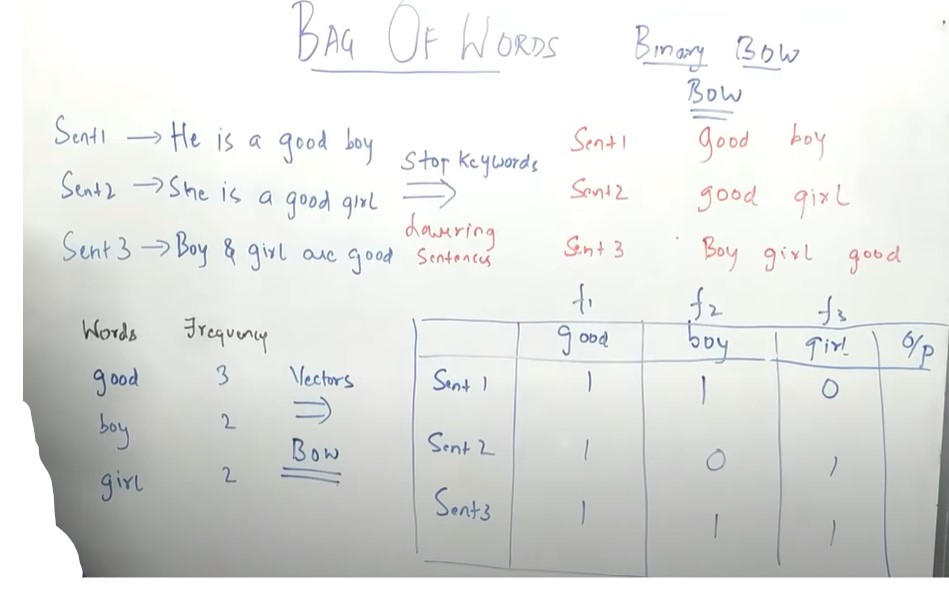 BAG OF WORDS
Binary BOW
BOW
Sent1 → He is a good boy
Sent2 → She is a good girl
Sent 3 → Boy & girl are good
Stop Keywords
⇒
Lowering
Sentences
Sent1 good boy
Sent2 good girl
Sent 3 Boy girl good
Words Frequency
good 3
boy 2
girl 2
Vectors
⇒
BOW
f1 f2 f3
good boy girl O/P
Sent 1 1 1 0
Sent 2 1 0 1
Sent3 1 1 1